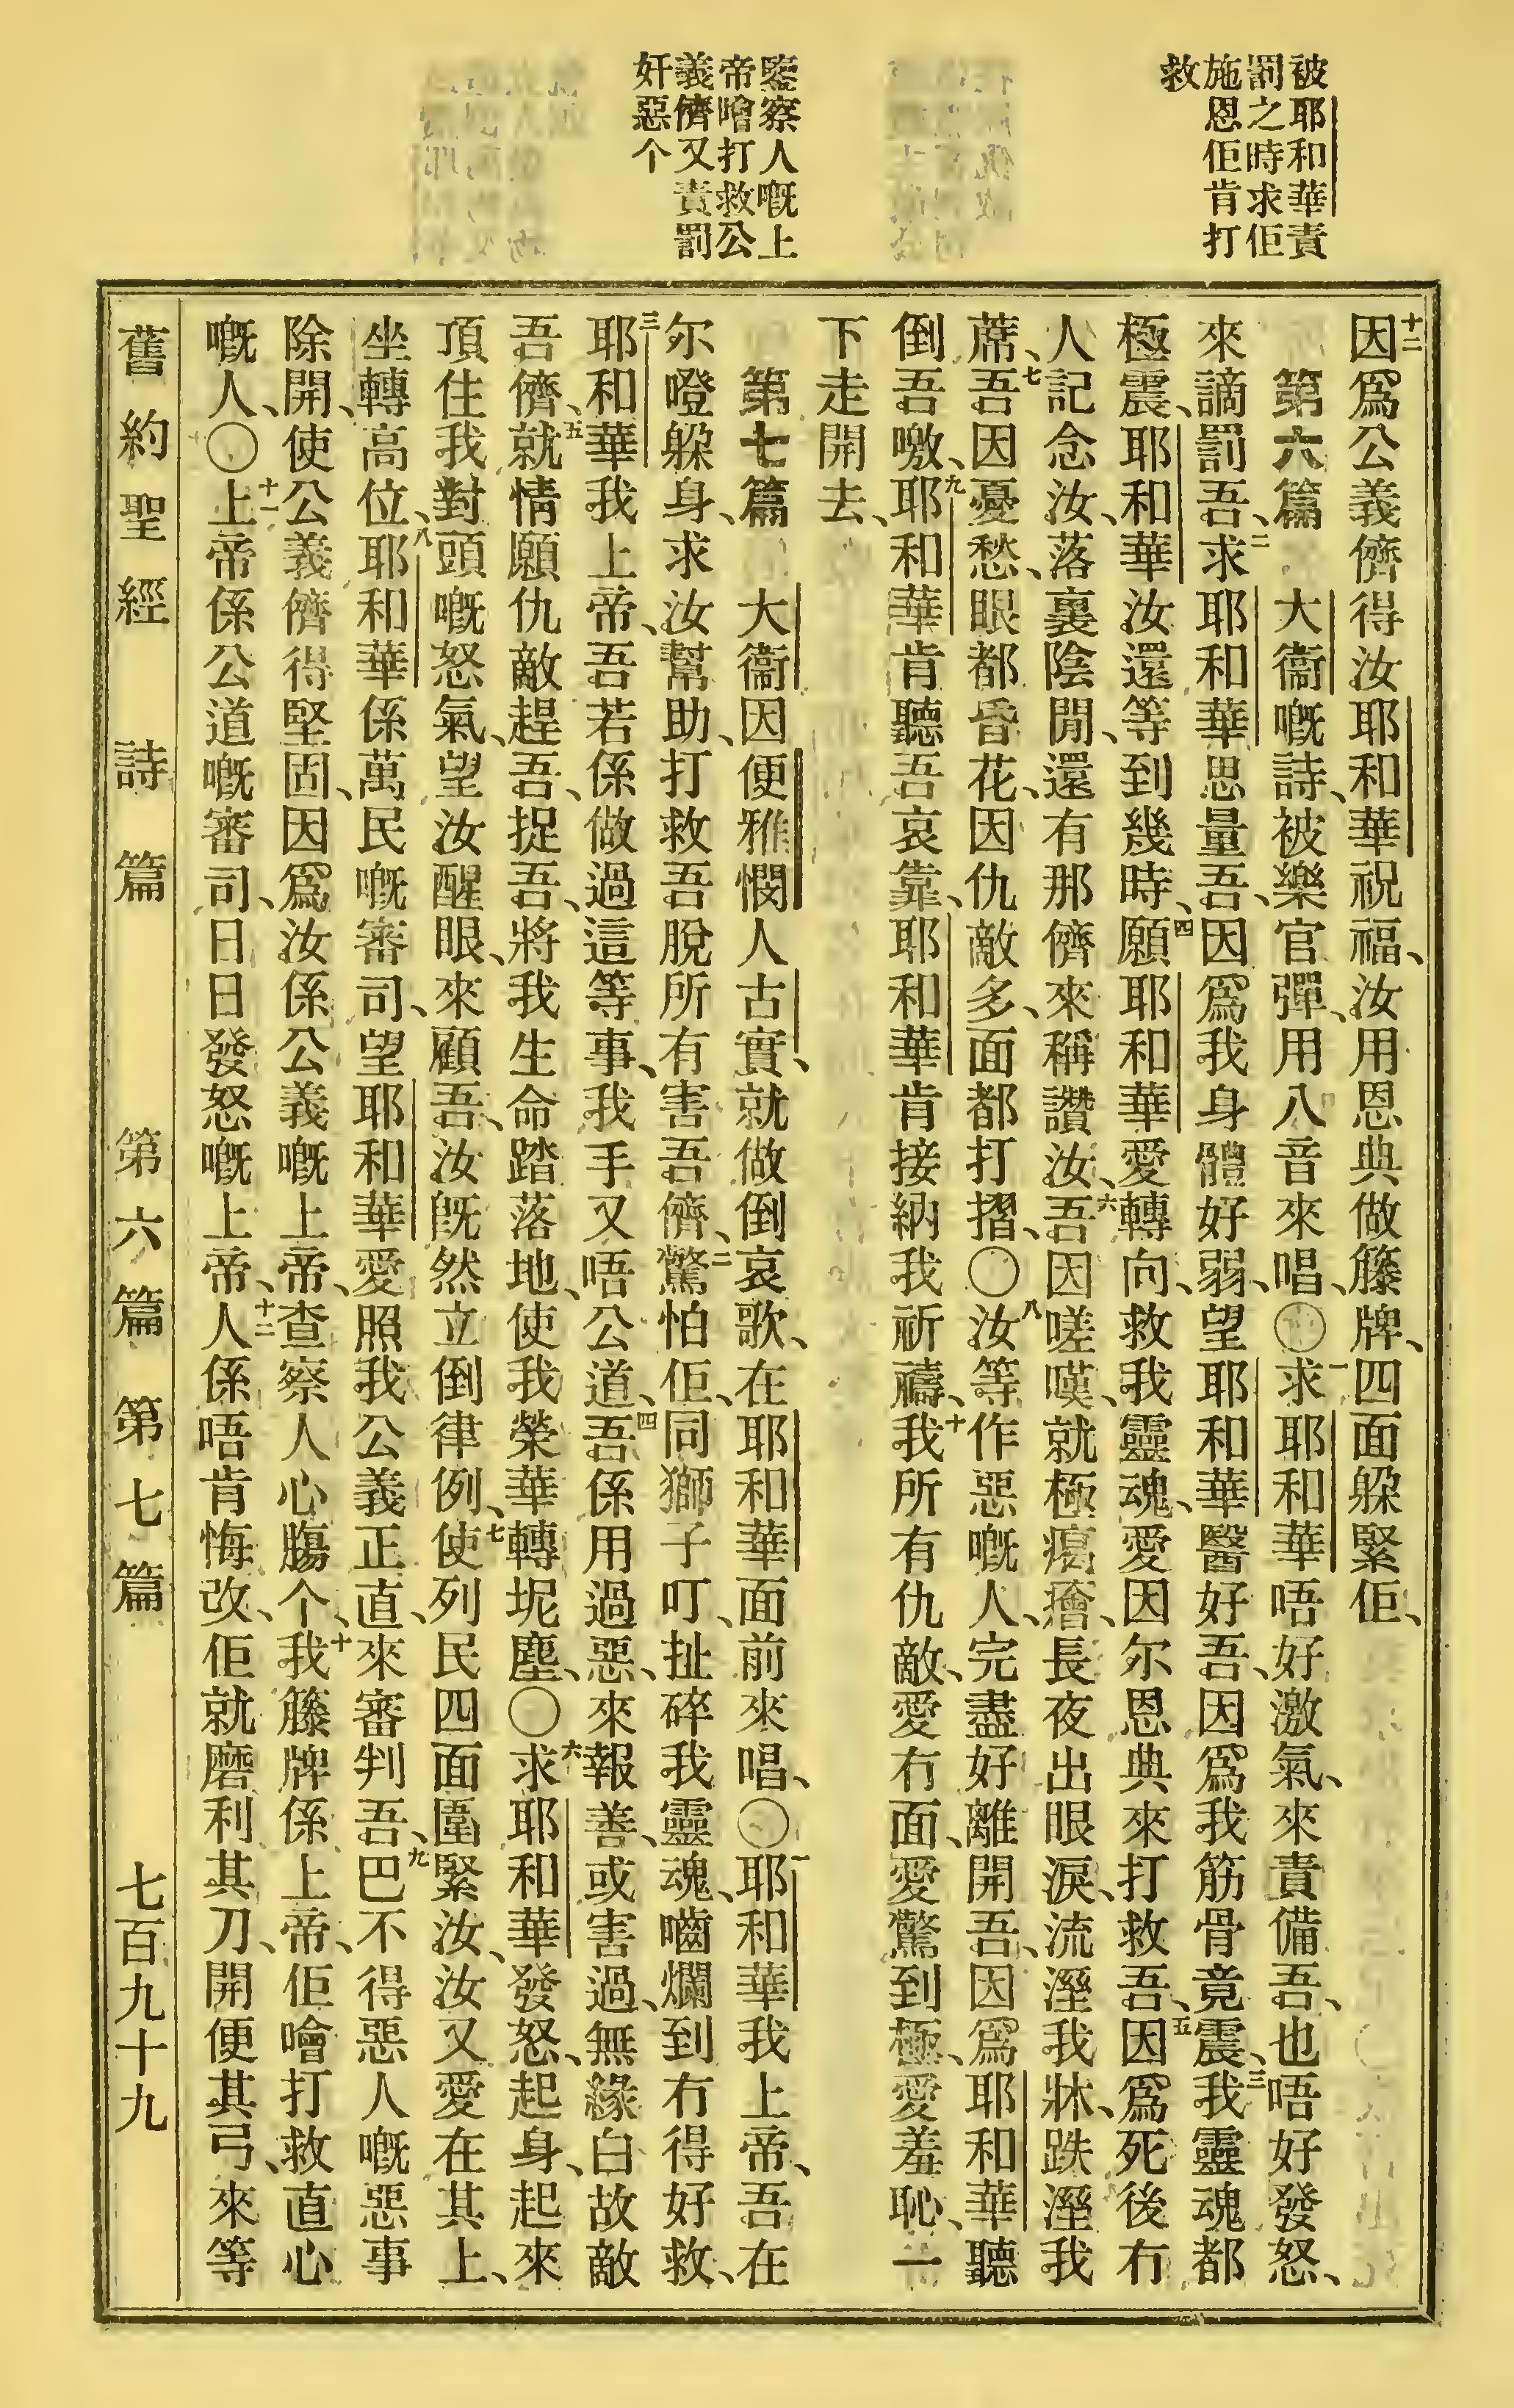 被耶和華責
罰之時求佢
施恩佢肯打
救
鑒察人嘅上
帝噲打救公
義儕又責罰
奸惡个
十二因爲公義儕得汝耶和華祝福、汝用恩典做籐牌、四面躲緊佢、
第六篇 大衞嘅詩、被樂官彈、用八音來唱、〇一求耶和華唔好激氣、來責備吾、也唔好發怒、
來謫罰吾、二求耶和華思量吾、因爲我身體好弱、望耶和華醫好吾、因爲我筋骨竟震、三我靈魂都
極震、耶和華汝還等到幾時、四願耶和華愛轉向、救我靈魂、愛因尔恩典來打救吾、五因爲死後冇
人記念汝、落裏陰間、還有那儕來稱讚汝、六吾因嗟嘆、就極癐、長夜出眼淚、流溼我牀、跌溼我
蓆、七吾因憂愁、眼都昏花、因仇敵多、面都打摺、〇八汝等作惡嘅人、完盡好離開吾、因爲耶和華聽
倒吾噭、九耶和華肯聽吾哀靠、耶和華肯接納我祈禱、十我所有仇敵、愛冇面、愛驚到極、愛羞恥、一
下走開去、
第七篇 大衞因便雅憫人古實、就做倒哀歌、在耶和華面前來唱、〇一耶和華我上帝、吾在
尔嶝躲身、求汝幫助、打救吾脫所有害吾儕、二驚怕佢、同獅子叮、扯碎我靈魂、嚙爛到冇得好救、
三耶和華我上帝、吾若係做過這等事、我手又唔公道、四吾係用過惡、來報善、或害過、無緣白故敵
吾儕、五就情願仇敵趕吾、捉吾、將我生命踏落地、使我榮華轉坭塵、〇六求耶和華發怒、起身、起來
頂住我對頭嘅怒氣、望汝醒眼、來顧吾、汝既然立倒律例、七使列民四面圍緊汝、汝又愛在其上、
坐轉高位、八耶和華係萬民嘅審司、望耶和華愛照我公義正直、來審判吾、九巴不得惡人嘅惡事
除開、使公義儕得堅固、因爲汝係公義嘅上帝、查察人心膓个、十我籐牌係上帝、佢噲打救直心
嘅人、〇十一上帝係公道嘅審司、日日發怒嘅上帝、十二人係唔肯悔改、佢就磨利其刀、開便其弓、來等
舊約聖經 詩篇 第六篇 第七篇 七百九十九